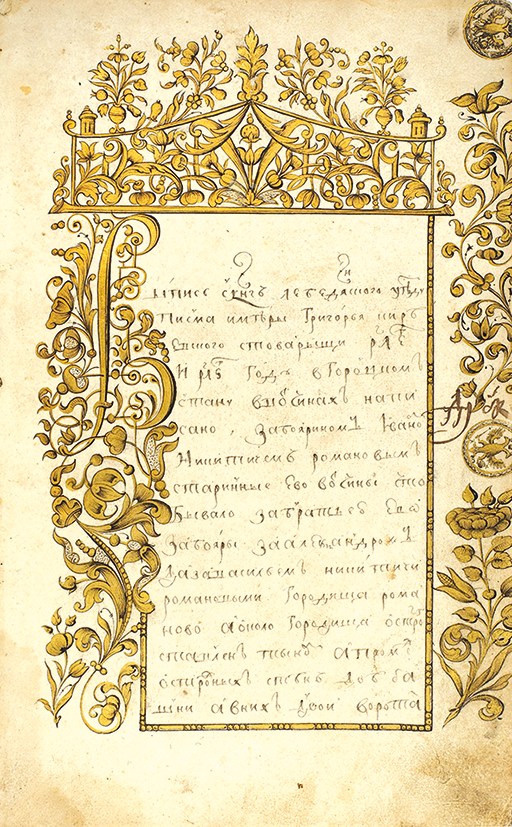 Выпис с книгъ Лебедянского уѣзду
писма и мѣры Григорья Кирѣ
евского с товарыщи рл҃е
и рл҃ѕ году в Городцкомъ
стану в вотчинахъ напи
сано, за бояриномъ Ивано
Никитичемъ романовымъ
старинные ево вотчины что
бывало за братьев ево
за бояры за Александромъ
да за Васильемъ никитичи
романовыми Городища рома
ново а около Городища остро
ставленъ тыномъ
острожных двѣ ба
шни а в них двои ворота